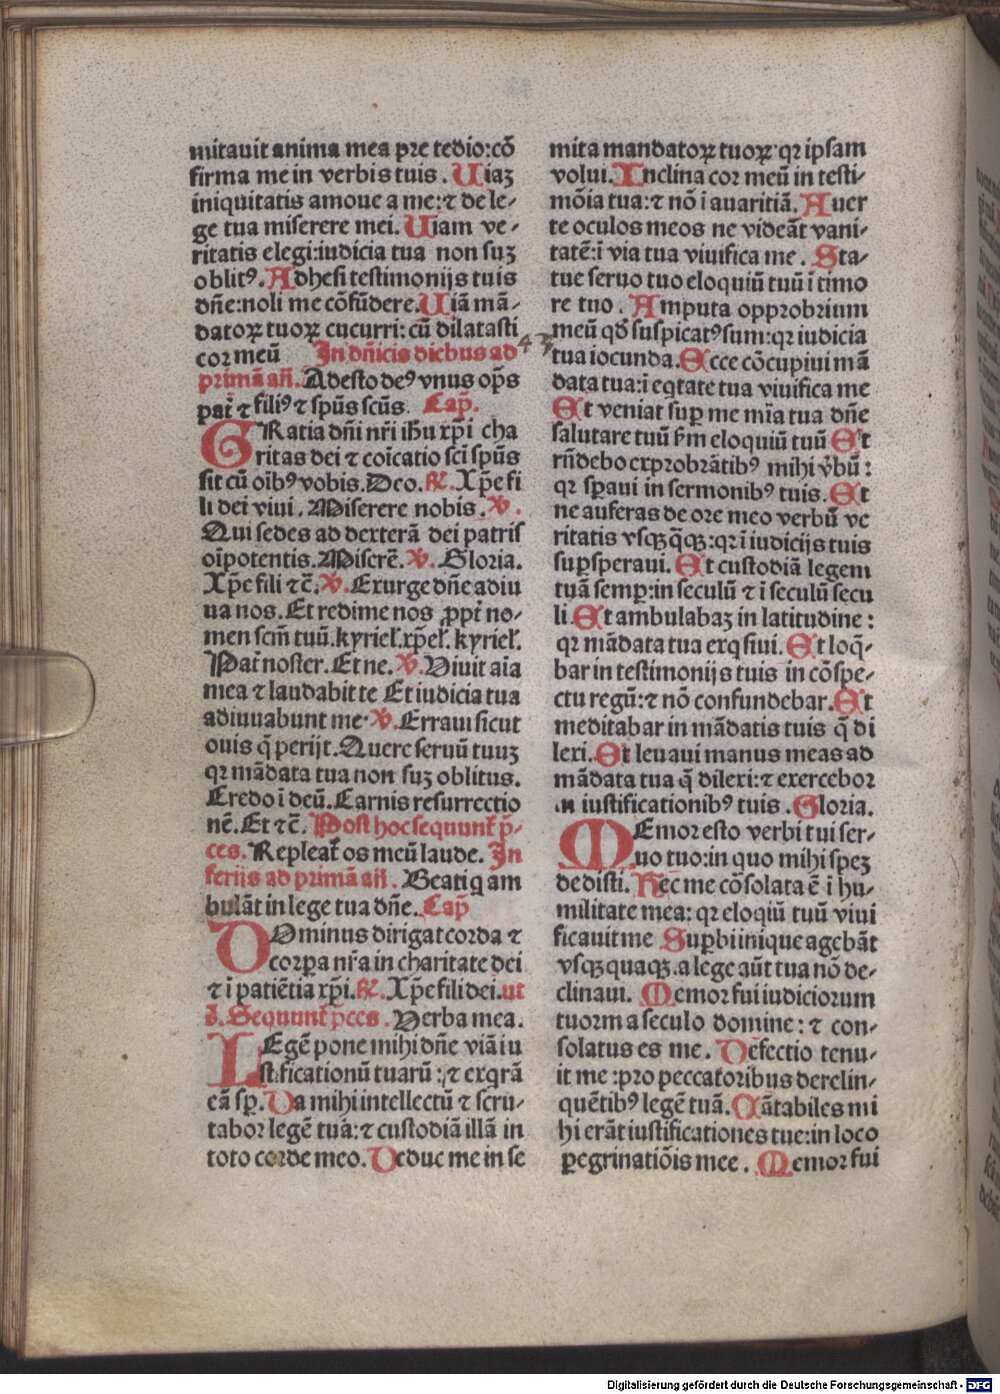 mitauit anima mea pre tedio:cō
firma me in verbis tuis . Uiaꝫ
iniquitatis amoue a me:⁊ de le⸗
ge tua miserere mei. Uiam ve⸗
ritatis elegi:iudicia tua non suꝫ
oblitꝰ. Adhesi testimonijs tuis
dñe:noli me cōfūdere. Uiā mā⸗
datoꝝ tuoꝝ cucurri: cū dilatasti
cor meū In dñicis diebus ad
primā añ. Adesto deꝰ vnus op̄s
pat̄ ⁊ filiꝰ ⁊ sp̄us scūs. Cap̄.
GRatia dñi nr̄i ihū xp̄i cha
ritas dei ⁊ coīcatio scī sp̄us
sit cū oībꝰ vobis. Deo. ℟. Xp̄e fi
li dei viui . Miserere nobis . ℣.
Qui sedes ad dexterā dei patris
oīpotentis. Miserē. ℣. Gloria.
Xp̄e fili ⁊c̄. ℣. Exurge dñe adiu
ua nos. Et redime nos ꝓpt̄ no⸗
men scm̄ tuū. kyriel̄. xp̄el̄. kyriel̄.
Pat̄ noster. Et ne. ℣. Viuit aīa
mea ⁊ laudabit te Et iudicia tua
adiuuabunt me. ℣. Erraui sicut
ouis q̄ perijt. Quere seruū tuuꝫ
qꝛ mādata tua non suꝫ oblitus.
Credo ī deū. Carnis resurrectio
nē. Et ⁊c̄. Post hoc sequunt̄ p̄⸗
ces. Repleat̄ os meū laude. In
ferijs ad primā añ . Beati q am
bulāt in lege tua dñe. Cap̄
DOminus dirigat corda ⁊
corꝑa nr̄a in charitate dei
⁊ ī patiētia xp̄i. ℟. Xp̄e fili dei. ut
s̄. Sequunt̄ p̄ces . Verba mea.
LEgē pone mihi dñe viā iu
stificationū tuarū : ⁊ exqrā
eā sꝑ. Da mihi intellectū ⁊ scru⸗
tabor legē tuā:⁊ custodiā illā in
toto corde meo. Deduc me in se
43
mita mandatoꝝ tuoꝝ qꝛ ipsam
volui. Inclina cor meū in testi⸗
mōia tua:⁊ nō ī auaritiā. Auer
te oculos meos ne videāt vani⸗
tatē:ī via tua viuifica me . Sta⸗
tue seruo tuo eloquiū tuū ī timo
re tuo . Amputa opprobrium
meū qd̄ suspicatꝰ sum:qꝛ iudicia
tua iocunda. Ecce cōcupiui mā
data tua:ī eqtate tua viuifica me
Et veniat suꝑ me mīa tua dñe
salutare tuū ẜm eloquiū tuū Et
rñdebo exprobrātibꝰ mihi v̄bū :
qꝛ sꝑaui in sermonibꝰ tuis . Et
ne auferas de ore meo verbū ve
ritatis vsqꝫ q̄qꝫ:qꝛ ī iudicijs tuis
suꝑsperaui. Et custodiā legem
tuā semꝑ:in seculū ⁊ ī seculū secu
li. Et ambulabaꝫ in latitudine :
qꝛ mādata tua exqsiui. Et loq̄⸗
bar in testimonijs tuis in cōspe⸗
ctu regū:⁊ nō confundebar. Et
meditabar in mādatis tuis q̄ di
lexi. Et leuaui manus meas ad
mādata tua q̄ dilexi:⁊ exercebor
in iustificationibꝰ tuis . Gloria.
MEmor esto verbi tui ser⸗
uo tuo:in quo mihi speꝫ
dedisti. Hec me cōsolata ē ī hu⸗
militate mea: qꝛ eloquiū tuū viui
ficauit me Suꝑbi inique agebāt
vsqꝫ quaqꝫ. a lege aūt tua nō de⸗
clinaui. Memor fui iudiciorum
tuorm a seculo domine : ⁊ con⸗
solatus es me . Defectio tenu⸗
it me :pro peccatoribus derelin⸗
quētibꝰ legē tuā. Cātabiles mi
hi erāt iustificationes tue:in loco
ꝑegrinatiōis mee . Memor fui
Digitalisierung gefördert durch die Deutsche Forschungsgemeinschaft - DFG